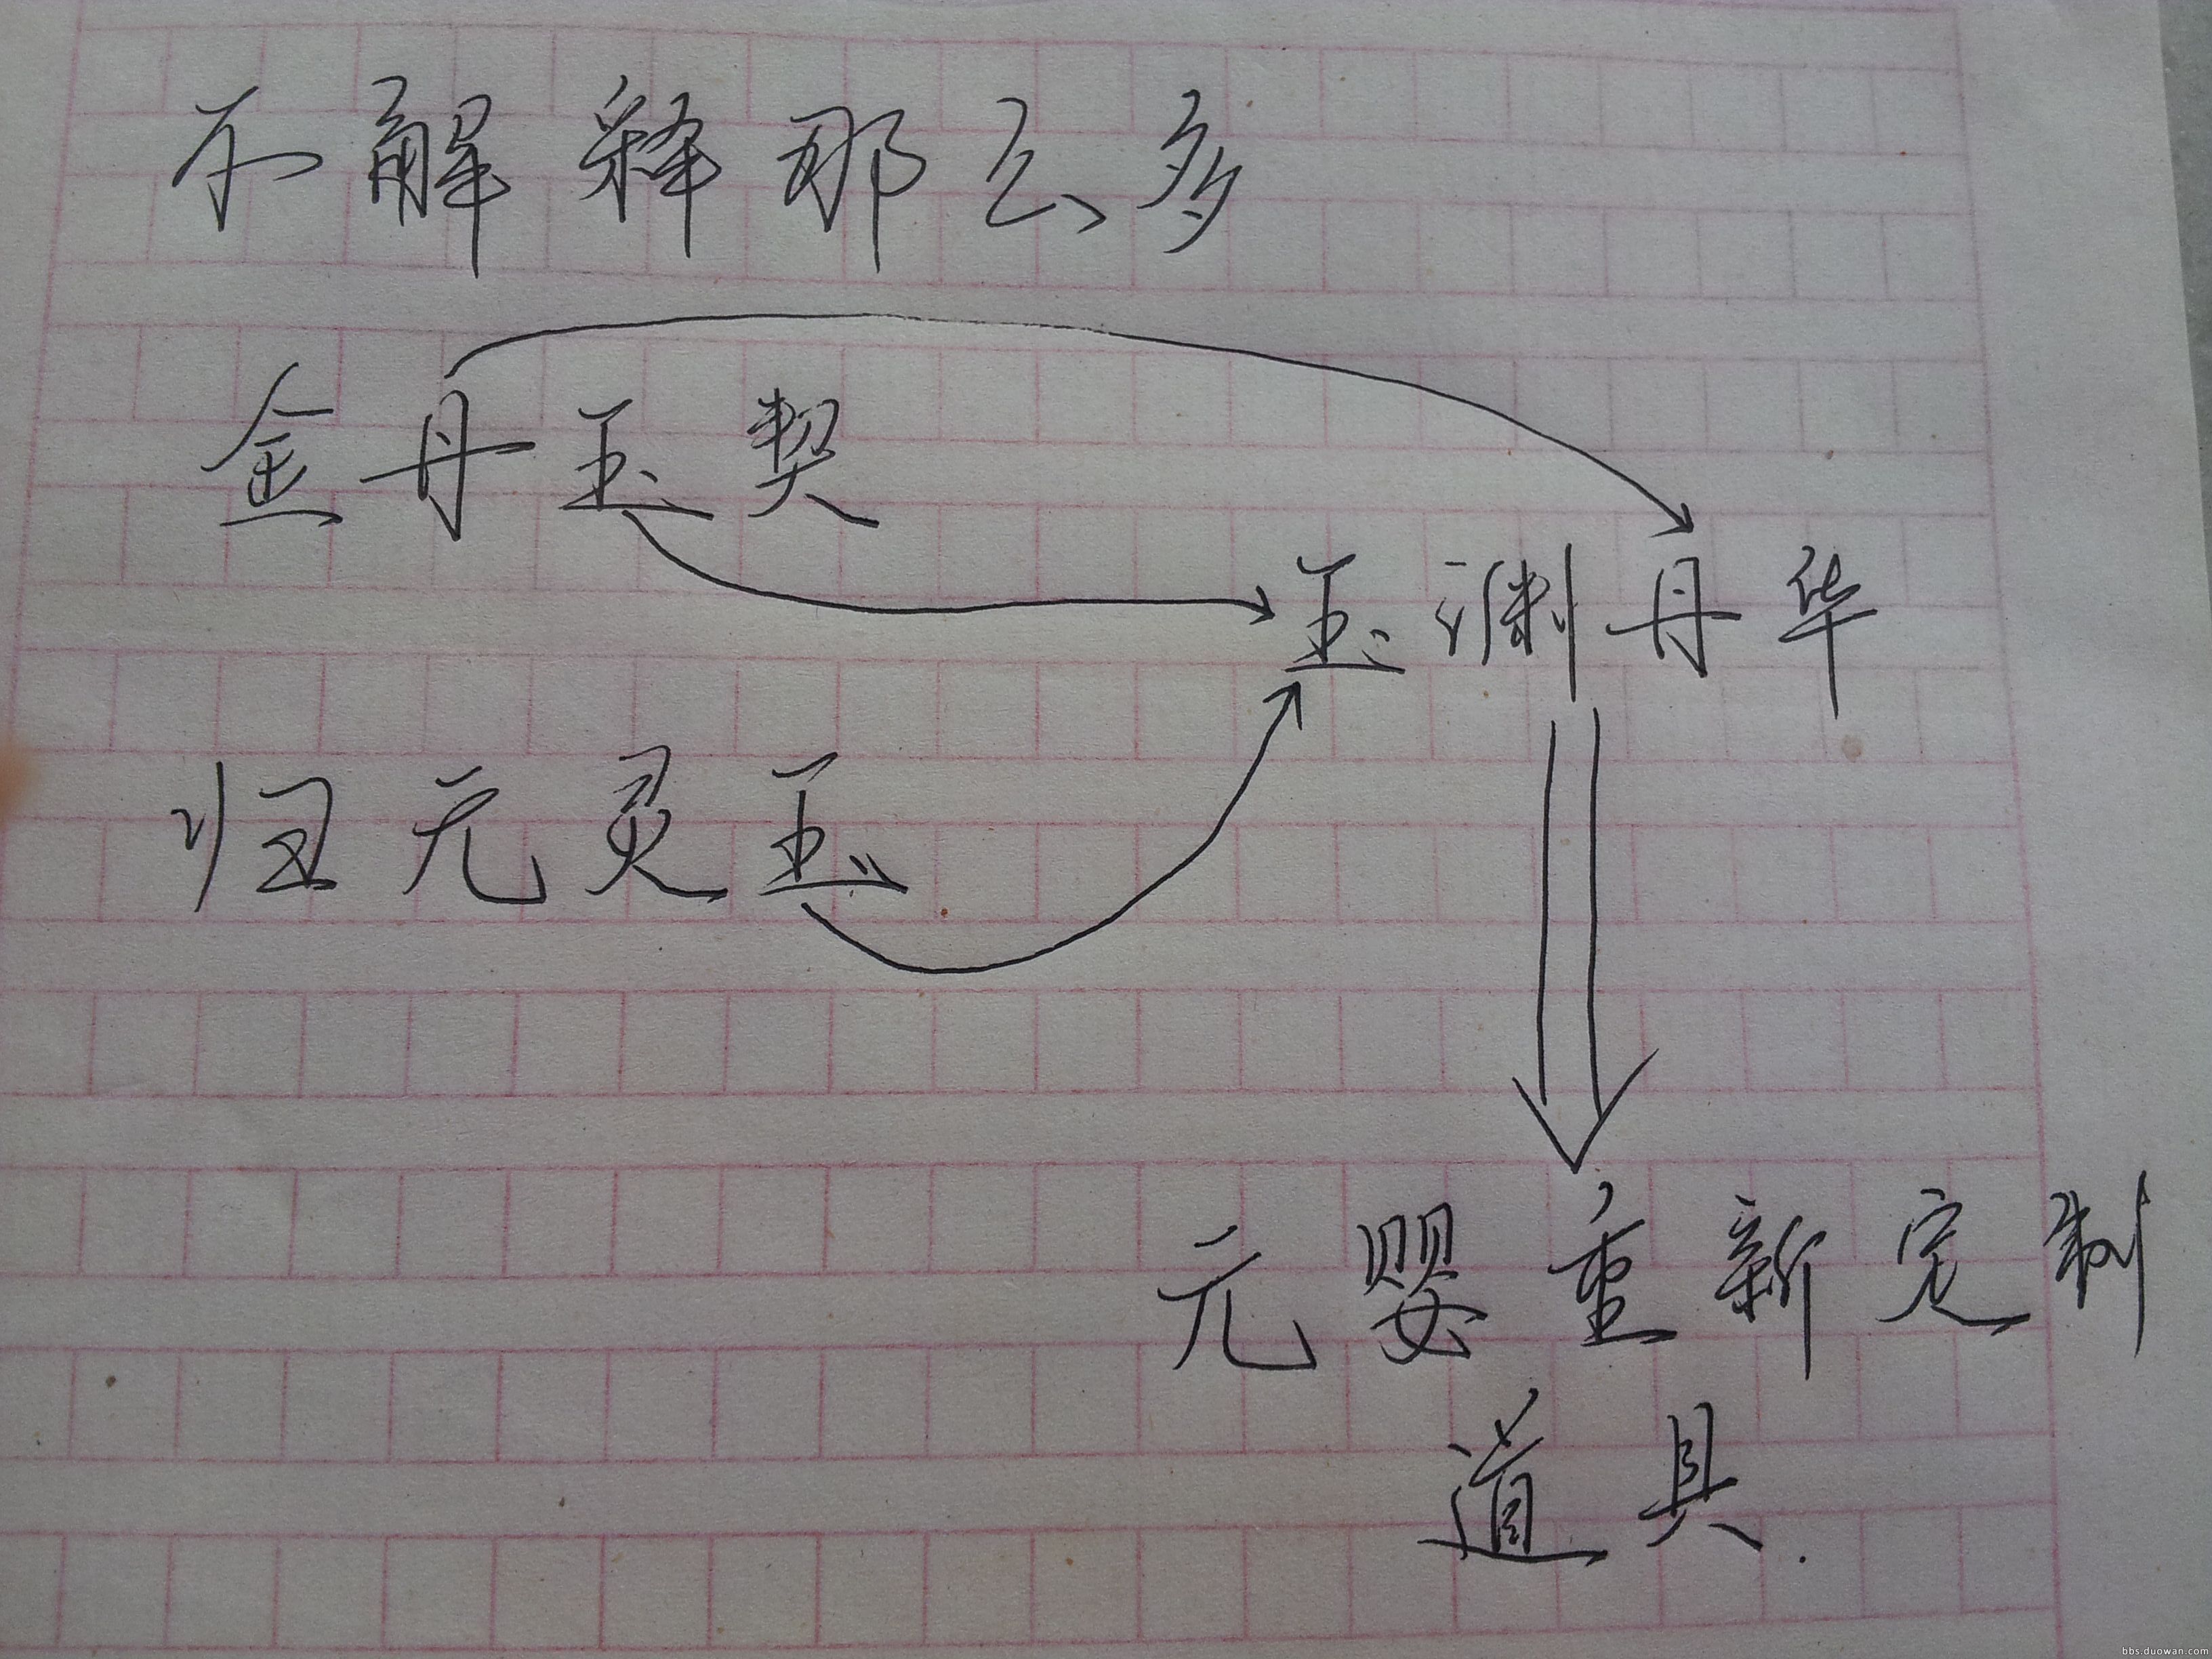 不解释那么多
金丹玉契
玉渊丹华
归元灵玉
元婴重新定制
道具.
bbs.duowan.com